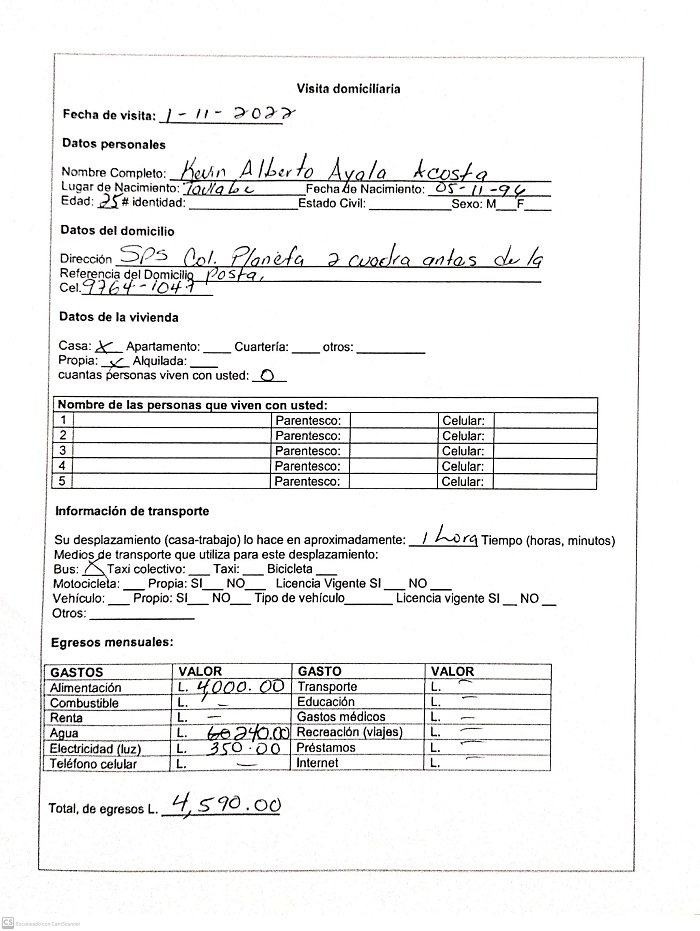 Visita domiciliaria
Fecha de visita: 1 - 11 - 2022
Datos personales
Nombre Completo: Kevin Alberto Ayala Acosta
Lugar de Nacimiento: Taulabe Fecha de Nacimiento: 05-11-96
Edad: 25 # identidad: ____ Estado Civil: ____ Sexo: M___F____
Datos del domicilio
Dirección SPS Col. Planeta 2 cuadra antes de la
Referencia del Domicilio posta,
Cel. 9764-1047
Datos de la vivienda
Casa: X Apartamento: ____ Cuartería: ____ otros: ____
Propia: X Alquilada: ____
cuantas personas viven con usted: 0
Nombre de las personas que viven con usted:
1 Parentesco: Celular:
2 Parentesco: Celular:
3 Parentesco: Celular:
4 Parentesco: Celular:
5 Parentesco: Celular:
Información de transporte
Su desplazamiento (casa-trabajo) lo hace en aproximadamente: 1 hora Tiempo (horas, minutos)
Medios de transporte que utiliza para este desplazamiento:
Bus: X Taxi colectivo: ___ Taxi: ___ Bicicleta ___
Motocicleta: ___ Propia: SI___ NO___ Licencia Vigente SI ___ NO ___
Vehículo: ___ Propio: SI___ NO___ Tipo de vehículo_______ Licencia vigente SI __ NO __
Otros: ____
Egresos mensuales:
GASTOS VALOR GASTO VALOR
Alimentación L. 4,000.00 Transporte L. —
Combustible L. — Educación L. —
Renta L. — Gastos médicos L. —
Agua L. 240.00 Recreación (viajes) L. —
Electricidad (luz) L. 350.00 Préstamos L. —
Teléfono celular L. — Internet L. —
Total, de egresos L. 4,590.00
CS Escaneado con CamScanner